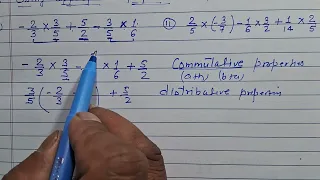 i) -2/3 × 3/5 + 5/2 - 3/5 × 1/6
ii) 2/5 × (-3/7) - 1/6 × 3/2 + 1/14 × 2/5
-2/3 × 3/5 - × 1/6 + 5/2 Commutative properties
(a+b) (b+a)
3/5 (-2/3 ) + 5/2 distributive